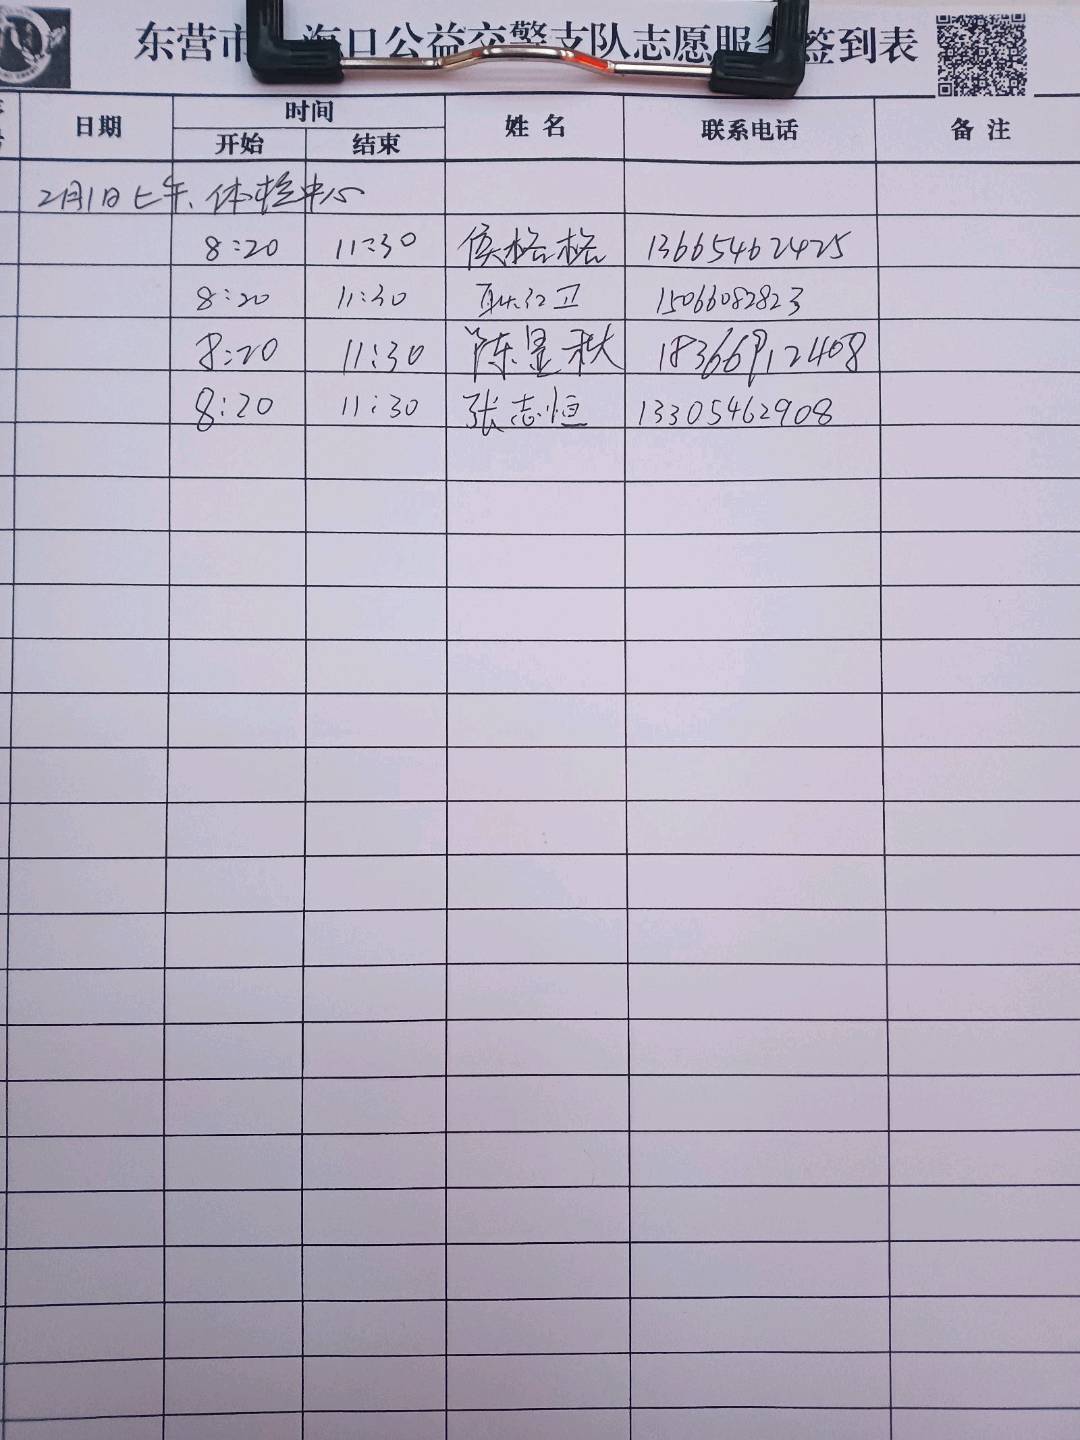 东营市 海口公益交警支队志愿服务签到表
日期 时间 姓名 联系电话 备注
开始 结束
2月1日上午、体检中心
8:20 11:30 侯格格 13665462425
8:20 11:30 红卫 15066082823
8:20 11:30 陈昱秋 18366912408
8:20 11:30 张志恒 13305462908